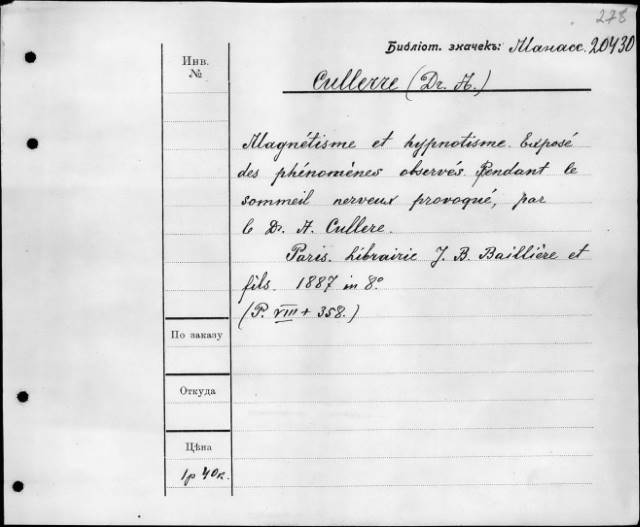 278
Библіот. значекъ: Манасс. 20430
Инв.
№
Cullerre (Dr. A.)
Magnétisme et hypnotisme. Exposé
des phénomènes observés Pendant le
sommeil nerveux provoqué, par
le Dr. A. Cullere.
Paris. Librairie J. B. Baillière et
fils. 1887 in 8º
(P. VIII + 358.)
По заказу
Откуда
Цѣна
1р 40к.